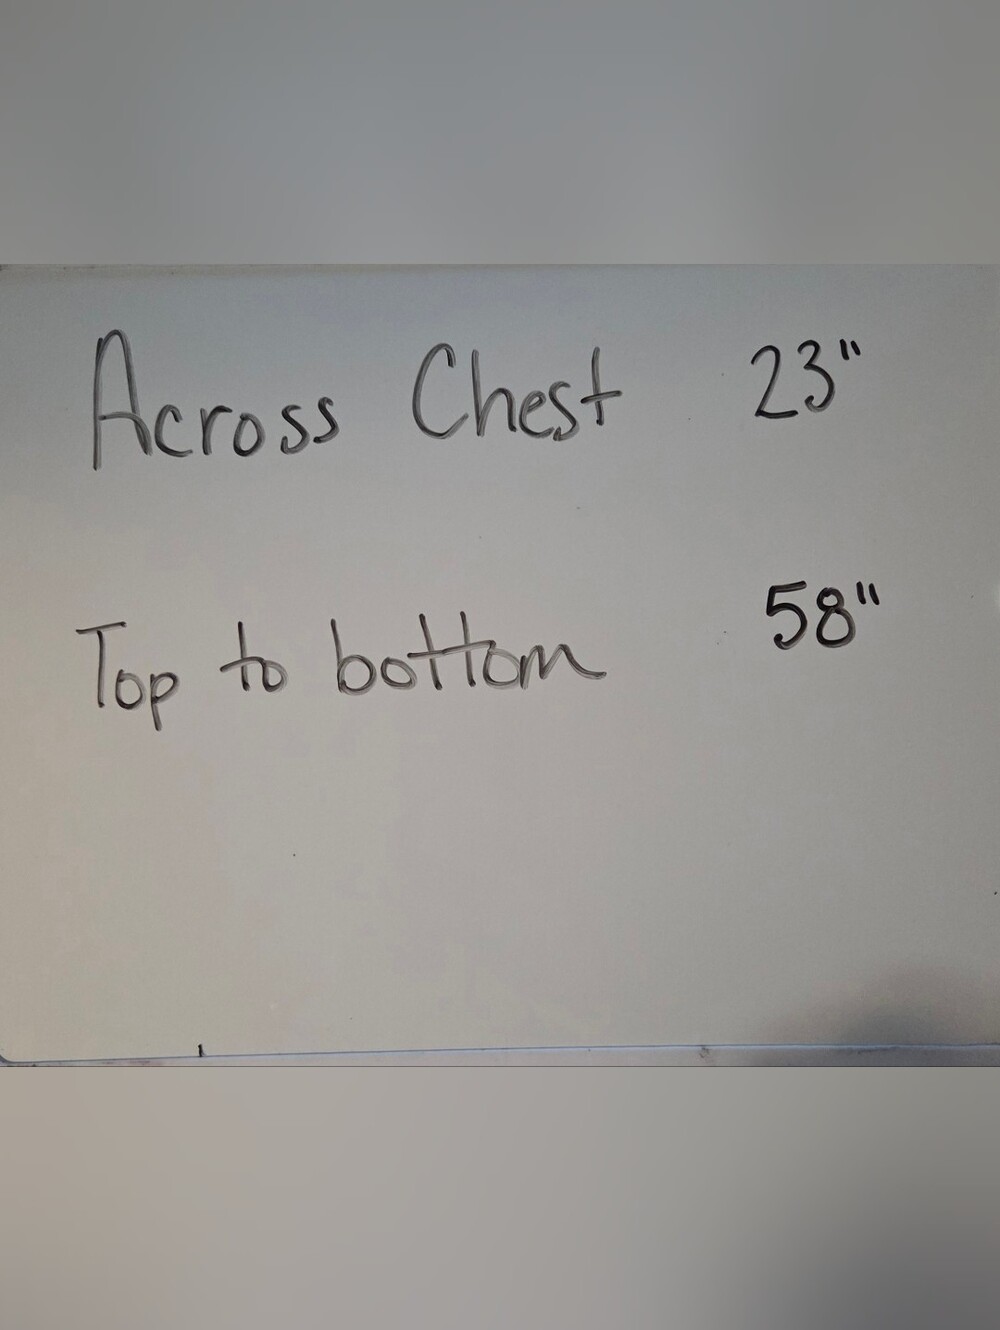 Across Chest 23"
Top to bottom 58"